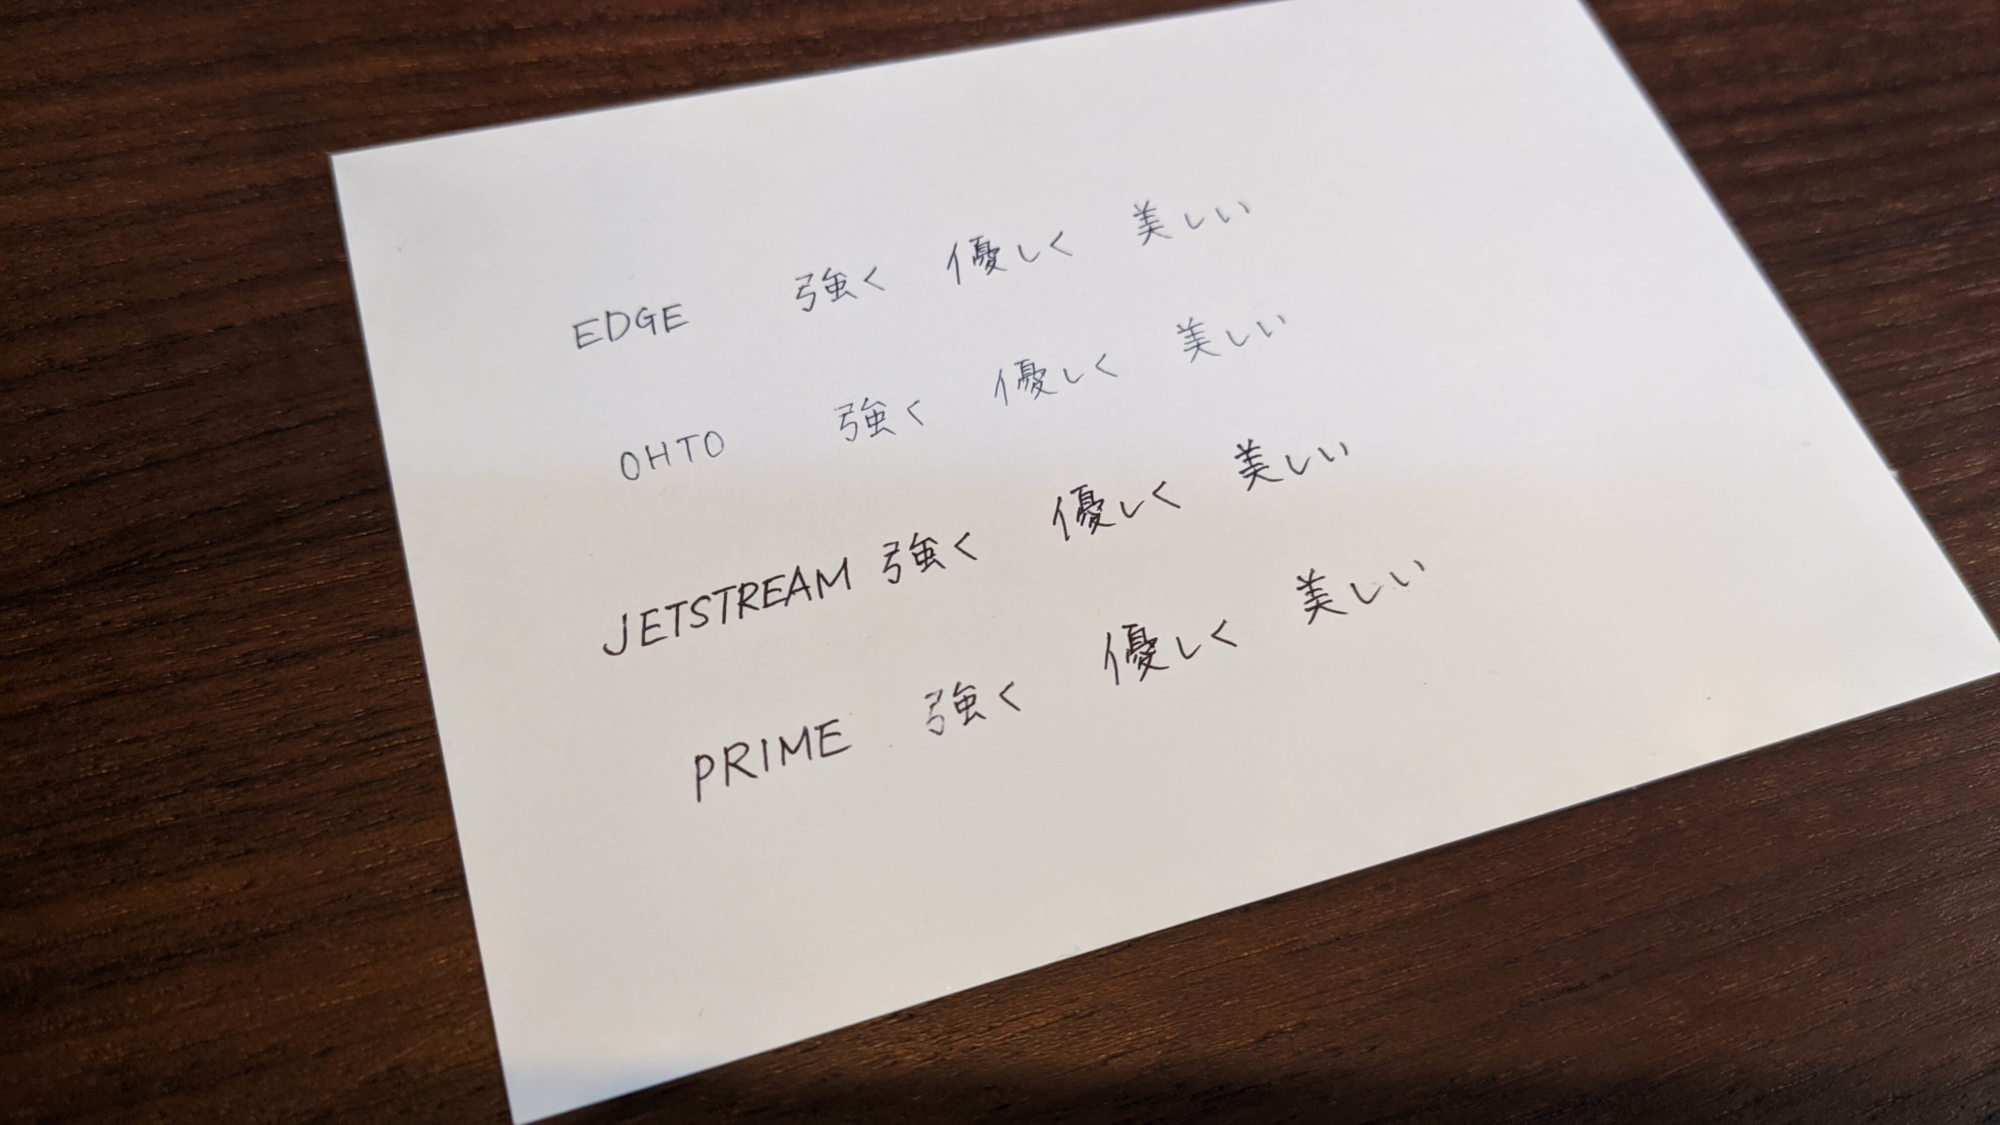 EDGE 強く 優しく 美しい
OHTO 強く 優しく 美しい
JETSTREAM 強く 優しく 美しい
PRIME 強く 優しく 美しい